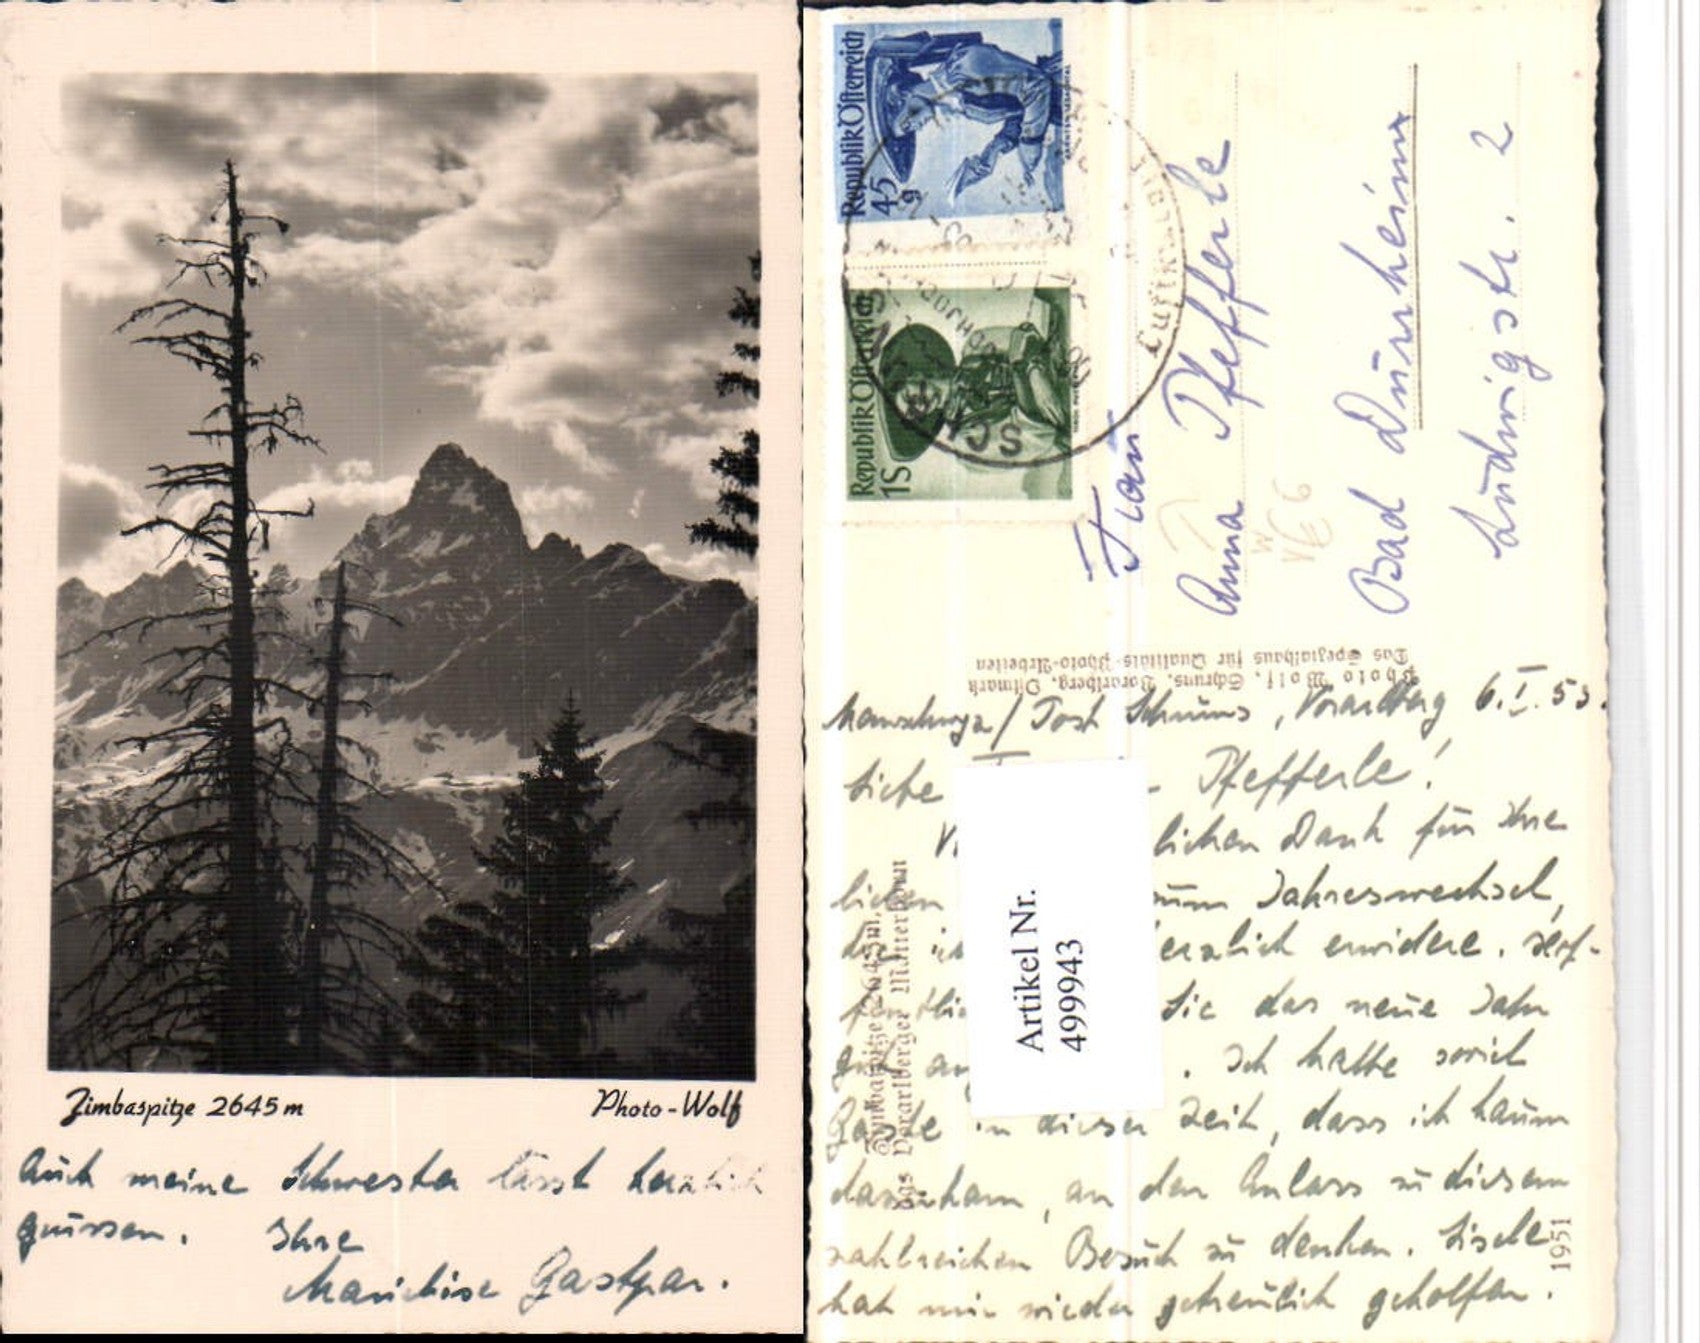 Zimbaspitze 2645 m
Photo-Wolf
Auch meine Schwester lässt herzlich
grüssen. Ihre
Gastpar.
Republik Österreich
45 g
Republik Österreich
1S
SCHRUNS
Luftkurort
Frau
Anna Pfefferle
Bad Dürrheim
Ludwigstr. 2
Photo Wolf, Schruns, Vorarlberg, Ostmark
Das Spezialhaus für Qualitäts-Photo-Arbeiten
Zimbaspitze 2645 m,
das Vorarlberger Matterhorn
/ Post Schruns, Vorarlberg 6.I.53.
Liebe Pfefferle!
lichen Dank für Ihre
lieben zum Jahreswechsel,
die ich herzlich erwidere. Hof-
fentlich Sie das neue Jahr
gut. Ich hatte soviel
Gäste in dieser Zeit, dass ich kaum
dazu kam, an den Anlass zu diesem
zahlreichen Besuch zu denken. Lisele
hat mir wieder getreulich geholfen.
1951
Artikel Nr.
499943